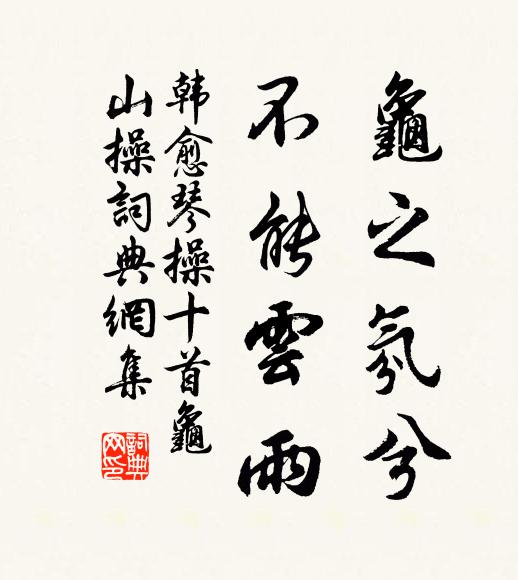 龜之氛兮
不能雲雨
韩愈琴操十首龜
山操詞典網集
詞典
网印